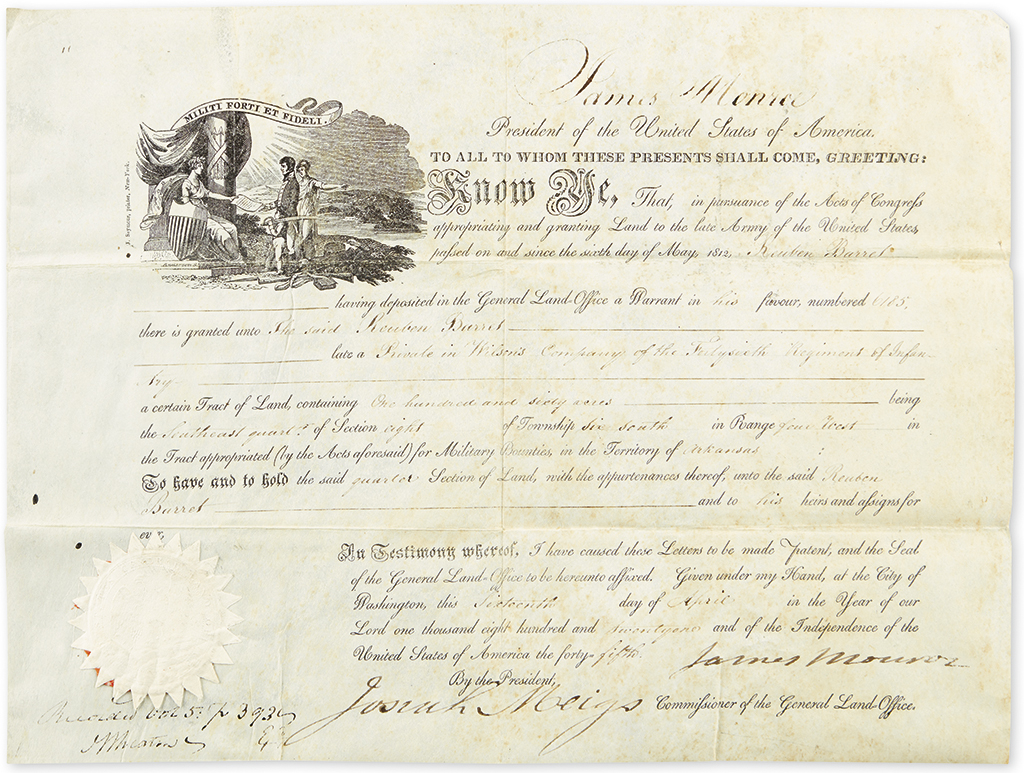 MILITI FORTI ET FIDELI.
James Monroe
President of the United States of America.
TO ALL TO WHOM THESE PRESENTS SHALL COME, GREETING:
Know Ye, That, in pursuance of the Acts of Congress
appropriating and granting Land to the late Army of the United States,
passed on and since the sixth day of May, 1812, Reuben Barret
having deposited in the General Land-Office a Warrant in his favour, numbered 6185,
there is granted unto the said Reuben Barret
late a Private in Wilson's Company of the Fortysixth Regiment of Infan-
try
a certain Tract of Land, containing One hundred and sixty acres being
the Southeast quart.r of Section eight of Township six south in Range four West in
the Tract appropriated (by the Acts aforesaid) for Military Bounties, in the Territory of Arkansas
To have and to hold the said quarter Section of Land, with the appurtenances thereof, unto the said Reuben
Barret and to his heirs and assigns for
ever,
In Testimony whereof, I have caused these Letters to be made Patent, and the Seal
of the General Land-Office to be hereunto affixed. Given under my Hand, at the City of
Washington, this Sixteenth day of April in the Year of our
Lord one thousand eight hundred and twentyone and of the Independence of the
United States of America the forty-fifth.
James Monroe
By the President,
Josiah Meigs Commissioner of the General Land-Office.
Recorded Vol 5. p 393
J Wheaton